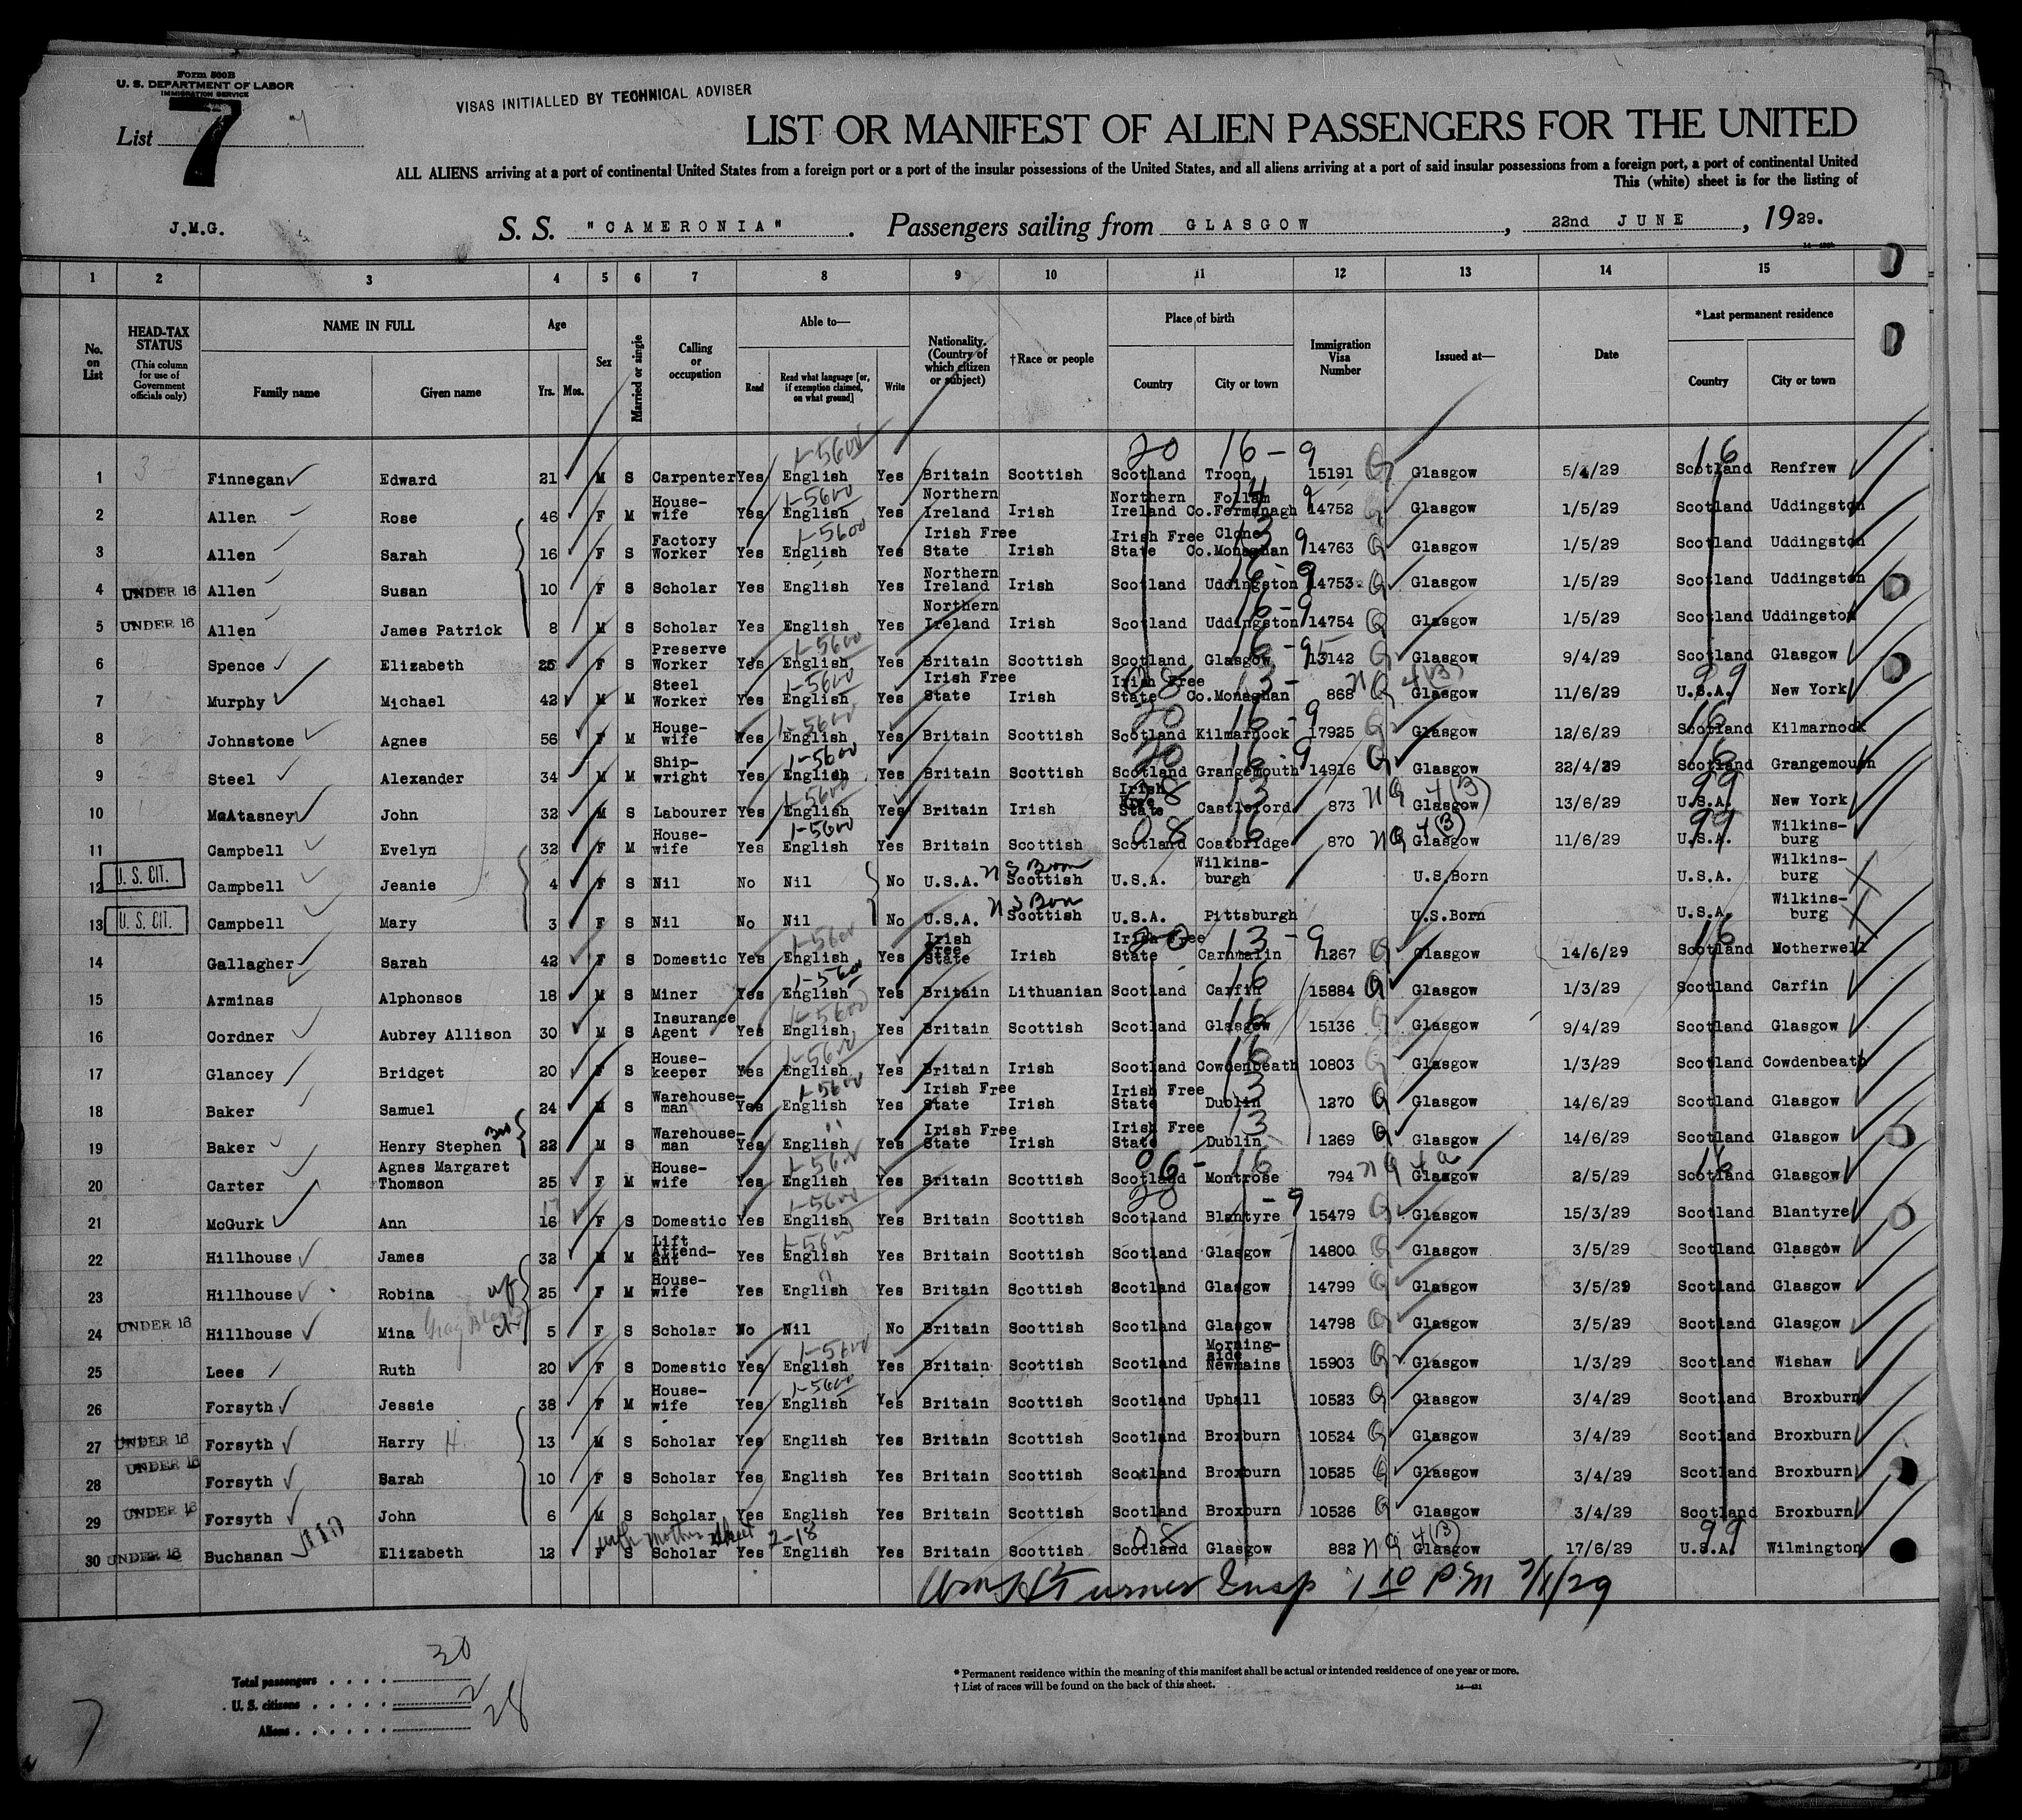 Form 500B
U. S. DEPARTMENT OF LABOR
IMMIGRATION SERVICE
VISAS INITIALLED BY TECHNICAL ADVISER
List 7
LIST OR MANIFEST OF ALIEN PASSENGERS FOR THE UNITED
ALL ALIENS arriving at a port of continental United States from a foreign port or a port of the insular possessions of the United States, and all aliens arriving at a port of said insular possessions from a foreign port, a port of continental United
This (white) sheet is for the listing of
J.M.G. S. S. "CAMERONIA". Passengers sailing from GLASGOW, 22nd JUNE, 1929.
1 2 3 4 5 6 7 8 9 10 11 12 13 14 15
No. on List HEAD-TAX STATUS (This column for use of Government officials only) NAME IN FULL Family name Given name Age Yrs. Mos. Sex Married or single Calling or occupation Able to— Read Read what language [or, if exemption claimed, on what ground] Write Nationality. (Country of which citizen or subject) †Race or people Place of birth Country City or town Immigration Visa Number Issued at— Date *Last permanent residence Country City or town
20 16-9 16
1 Finnegan Edward 21 M S Carpenter Yes English 1-5600 Yes Britain Scottish Scotland Troon 15191 Glasgow 5/4/29 Scotland Renfrew
2 Allen Rose 46 F M House-wife Yes English 1-5600 Yes Northern Ireland Irish Northern Ireland Co.Fermanagh 14752 Glasgow 1/5/29 Scotland Uddingston
3 Allen Sarah 16 F S Factory Worker Yes English 1-5600 Yes Irish Free State Irish Irish Free State Clones Co.Monaghan 14763 Glasgow 1/5/29 Scotland Uddingston
4 UNDER 16 Allen Susan 10 F S Scholar Yes English Yes Northern Ireland Irish Scotland Uddingston 14753 Glasgow 1/5/29 Scotland Uddingston
5 UNDER 16 Allen James Patrick 8 M S Scholar Yes English Yes Northern Ireland Irish Scotland Uddingston 14754 Glasgow 1/5/29 Scotland Uddingston
6 Spence Elizabeth 25 F S Preserve Worker Yes English 1-5600 Yes Britain Scottish Scotland Glasgow 13142 Glasgow 9/4/29 Scotland Glasgow
7 Murphy Michael 42 M M Steel Worker Yes English 1-5600 Yes Irish Free State Irish Irish Free State Co.Monaghan 868 NQ 4(B) Glasgow 11/6/29 U.S.A. New York
8 Johnstone Agnes 56 F M House-wife Yes English 1-5600 Yes Britain Scottish Scotland Kilmarnock 17925 Glasgow 12/6/29 Scotland Kilmarnock
9 Steel Alexander 34 M M Ship-wright Yes English 1-5600 Yes Britain Scottish Scotland Grangemouth 14916 Glasgow 22/4/29 Scotland Grangemouth
10 McAtasney John 32 M S Labourer Yes English 1-5600 Yes Britain Irish Irish Free State Castleford 873 NQ 4(B) Glasgow 13/6/29 U.S.A. New York
11 Campbell Evelyn 32 F M House-wife Yes English 1-5600 Yes Britain Scottish Scotland Coatbridge 870 NQ 4(B) Glasgow 11/6/29 U.S.A. Wilkins-burg
12 U. S. CIT. Campbell Jeanie 4 F S Nil No Nil No U.S.A. Scottish U.S.A. Wilkins-burgh U.S.Born U.S.A. Wilkins-burg
13 U. S. CIT. Campbell Mary 3 F S Nil No Nil No U.S.A. Scottish U.S.A. Pittsburgh U.S.Born U.S.A. Wilkins-burg
14 Gallagher Sarah 42 F S Domestic Yes English 1-5600 Yes Irish Free State Irish Irish Free State Carnmalin 1267 Glasgow 14/6/29 Scotland Motherwell
15 Arminas Alphonsos 18 M S Miner Yes English 1-5600 Yes Britain Lithuanian Scotland Carfin 15884 Glasgow 1/3/29 Scotland Carfin
16 Cordner Aubrey Allison 30 M S Insurance Agent Yes English 1-5600 Yes Britain Scottish Scotland Glasgow 15136 Glasgow 9/4/29 Scotland Glasgow
17 Glancey Bridget 20 F S House-keeper Yes English 1-5600 Yes Britain Irish Scotland Cowdenbeath 10803 Glasgow 1/3/29 Scotland Cowdenbeath
18 Baker Samuel 24 M S Warehouse-man Yes English 1-5600 Yes Irish Free State Irish Irish Free State Dublin 1270 Glasgow 14/6/29 Scotland Glasgow
19 Baker Henry Stephen 22 M S Warehouse-man Yes English " Yes Irish Free State Irish Irish Free State Dublin 1269 Glasgow 14/6/29 Scotland Glasgow
20 Carter Agnes Margaret Thomson 25 F M House-wife Yes English 1-5600 Yes Britain Scottish Scotland Montrose 794 NQ 4a Glasgow 2/5/29 Scotland Glasgow
21 McGurk Ann 16 F S Domestic Yes English 1-5600 Yes Britain Scottish Scotland Blantyre 15479 Glasgow 15/3/29 Scotland Blantyre
22 Hillhouse James 32 M M Lift Attend-ant Yes English 1-5600 Yes Britain Scottish Scotland Glasgow 14800 Glasgow 3/5/29 Scotland Glasgow
23 Hillhouse Robina wf 25 F M House-wife Yes English " Yes Britain Scottish Scotland Glasgow 14799 Glasgow 3/5/29 Scotland Glasgow
24 UNDER 16 Hillhouse Mina ch 5 F S Scholar No Nil No Britain Scottish Scotland Glasgow 14798 Glasgow 3/5/29 Scotland Glasgow
25 Lees Ruth 20 F S Domestic Yes English 1-5600 Yes Britain Scottish Scotland Morning-side Newmains 15903 Glasgow 1/3/29 Scotland Wishaw
26 Forsyth Jessie 38 F M House-wife Yes English 1-5600 Yes Britain Scottish Scotland Uphall 10523 Glasgow 3/4/29 Scotland Broxburn
27 UNDER 16 Forsyth Harry H 13 M S Scholar Yes English Yes Britain Scottish Scotland Broxburn 10524 Glasgow 3/4/29 Scotland Broxburn
28 UNDER 16 Forsyth Sarah 10 F S Scholar Yes English Yes Britain Scottish Scotland Broxburn 10525 Glasgow 3/4/29 Scotland Broxburn
29 UNDER 16 Forsyth John 6 M S Scholar Yes English Yes Britain Scottish Scotland Broxburn 10526 Glasgow 3/4/29 Scotland Broxburn
with mother sheet 2-18
30 UNDER 16 Buchanan Elizabeth 12 F S Scholar Yes English Yes Britain Scottish Scotland Glasgow 882 NQ 4(B) Glasgow 17/6/29 U.S.A. Wilmington
Wm H Turner Insp 1 10 PM 7/1/29
Total passengers 30
U. S. citizens 2
Aliens 28
* Permanent residence within the meaning of this manifest shall be actual or intended residence of one year or more.
† List of races will be found on the back of this sheet.
14—421
7